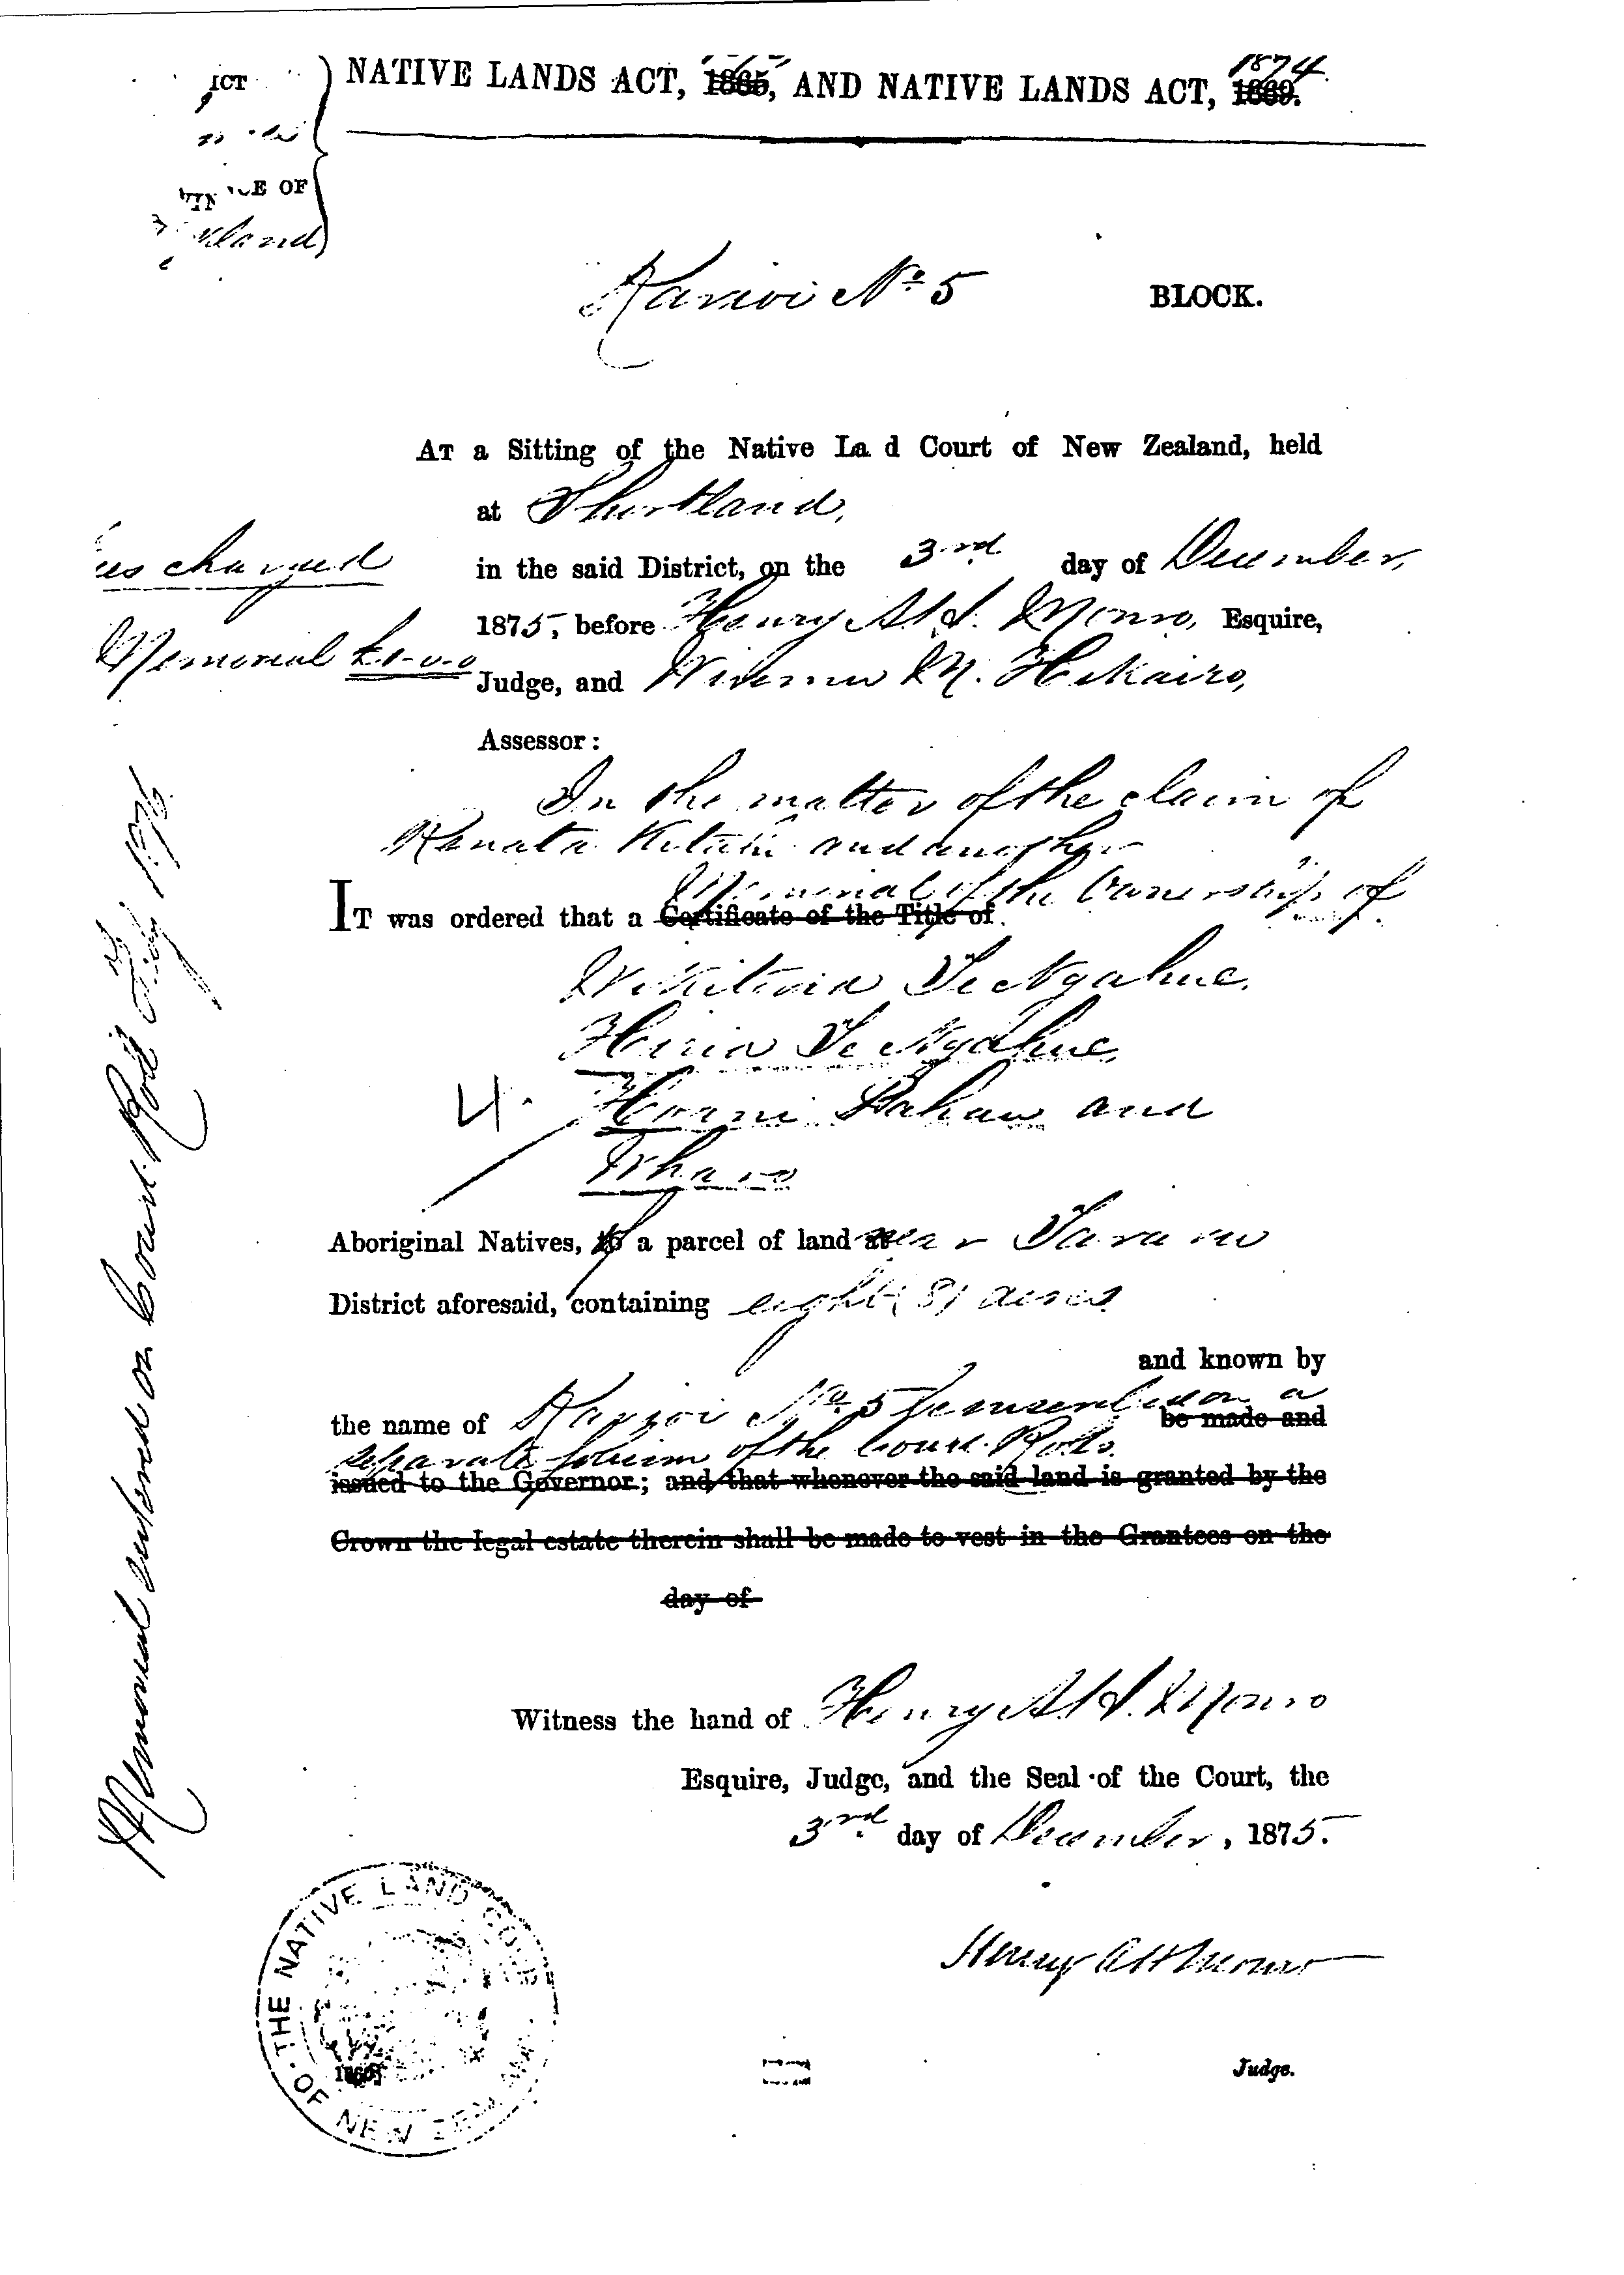 ICT
NATIVE LANDS ACT, 1865, AND NATIVE LANDS ACT, 1869.
1874
CE OF
kland
No 5 BLOCK.
AT a Sitting of the Native La d Court of New Zealand, held
at Shortland,
in the said District, on the 3rd day of December,
1875, before Henry A. H. Monro, Esquire,
Judge, and M. Hikairo,
Assessor:
In the matter of the claim of
Renata and another
Memorial of the Ownership of
IT was ordered that a Certificate of the Title of
Wikitoria Te Ngahue.
Hiria Te Ngahue,
4. Pahau and
Wharo
Aboriginal Natives, to of a parcel of land at near Tararu
District aforesaid, containing eight (8) acres
and known by
the name of No. 5 be inscribed on a
be made and
separate folium of the Court Rolls.
issued to the Governor; and that whenever the said land is granted by the
Crown the legal estate therein shall be made to vest in the Grantees on the
day of
Witness the hand of Henry A. H. Monro
Esquire, Judge, and the Seal of the Court, the
3rd day of December, 1875.
Henry A H Monro
Judge.
charged
Memorial £1-0-0
Memorial entered on Court Roll
THE NATIVE LAND COURT
OF NEW ZEALAND
1865